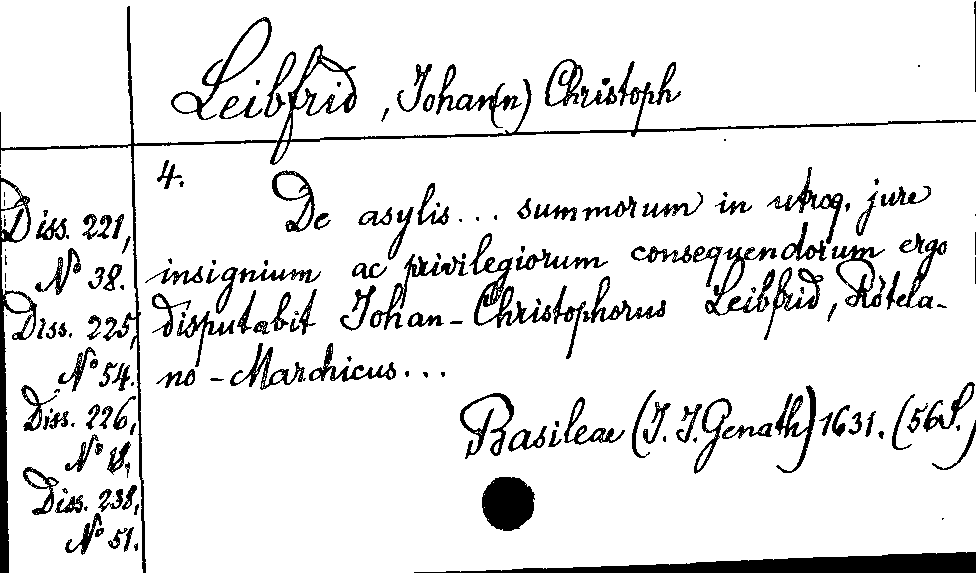 Leibfrid, Johan(n) Christoph
4.
De asylis... summorum in utroq. jure
insignium ac privilegiorum consequendorum ergo
disputabit Johan-Christophorus Leibfrid, Rötela-
no-Marchicus...
Basileae (J. J. Genath) 1631. (56 S.)
Diss. 221,
No 38.
Diss. 225,
No 54.
Diss. 226,
No 18,
Diss. 238,
No 51.